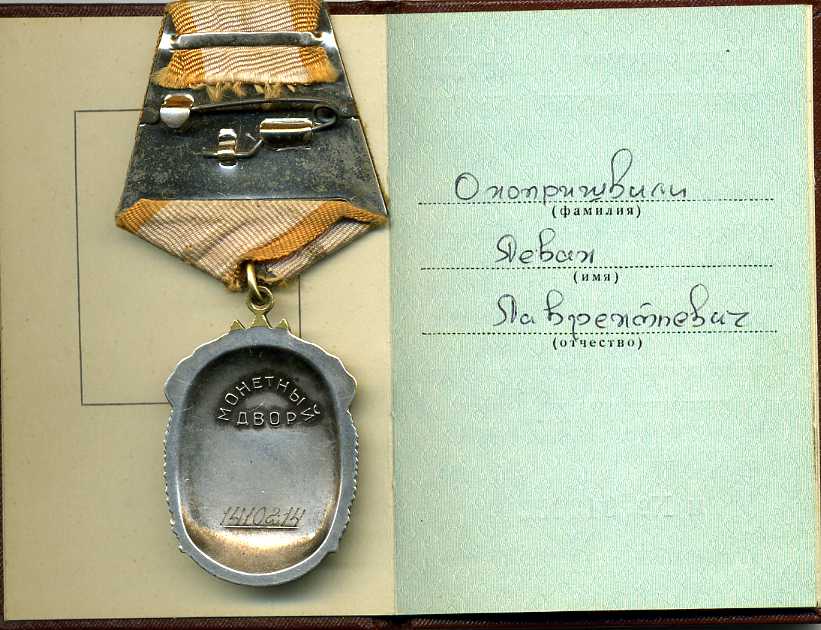 МОНЕТНЫЙ
ДВОР
1410214
Охопришвили
(фамилия)
Леван
(имя)
Лаврентьевич
(отчество)